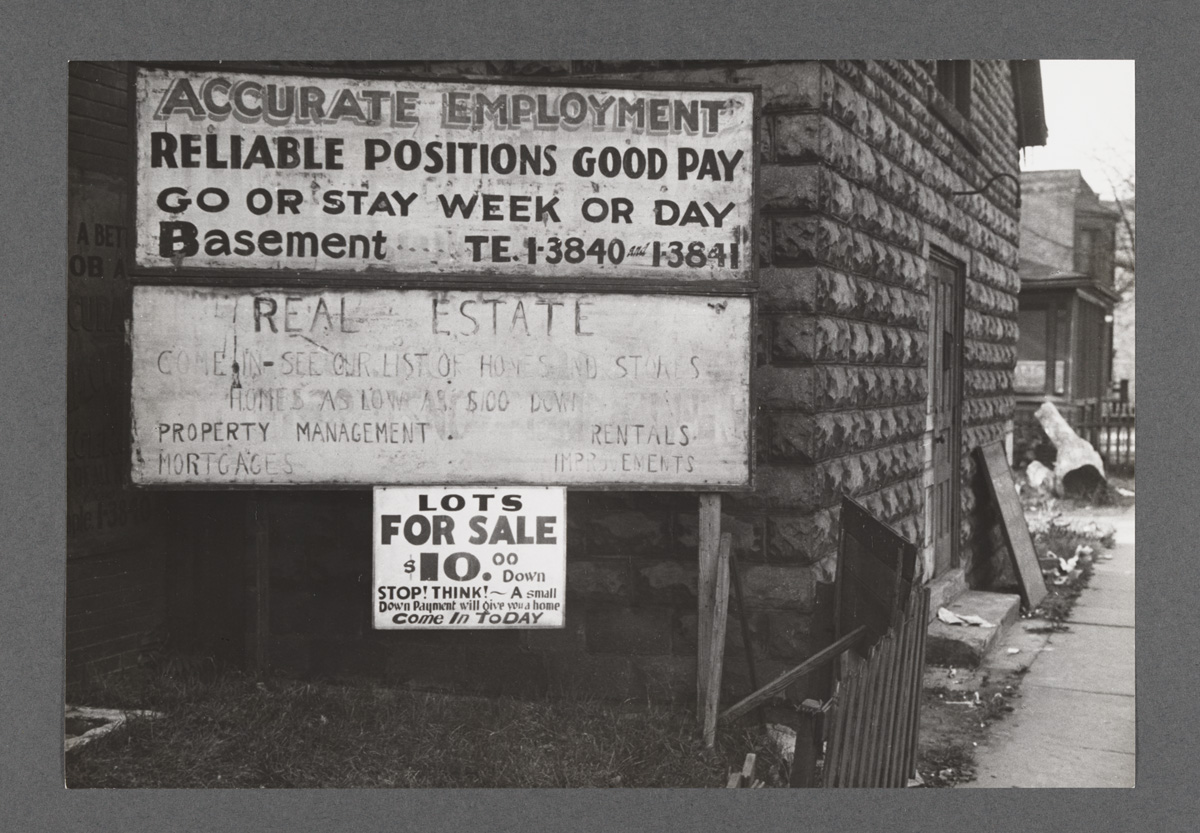 ACCURATE EMPLOYMENT
RELIABLE POSITIONS GOOD PAY
GO OR STAY WEEK OR DAY
Basement TE. 1-3840 and 1-3841
REAL ESTATE
COME IN-SEE OUR LIST OF HOMES AND STORES
HOMES AS LOW AS $100 DOWN
PROPERTY MANAGEMENT RENTALS
MORTGAGES IMPROVEMENTS
LOTS
FOR SALE
$10.00 Down
STOP! THINK! ~ A small
Down Payment will give you a home
Come In ToDAY
A BET
OB A